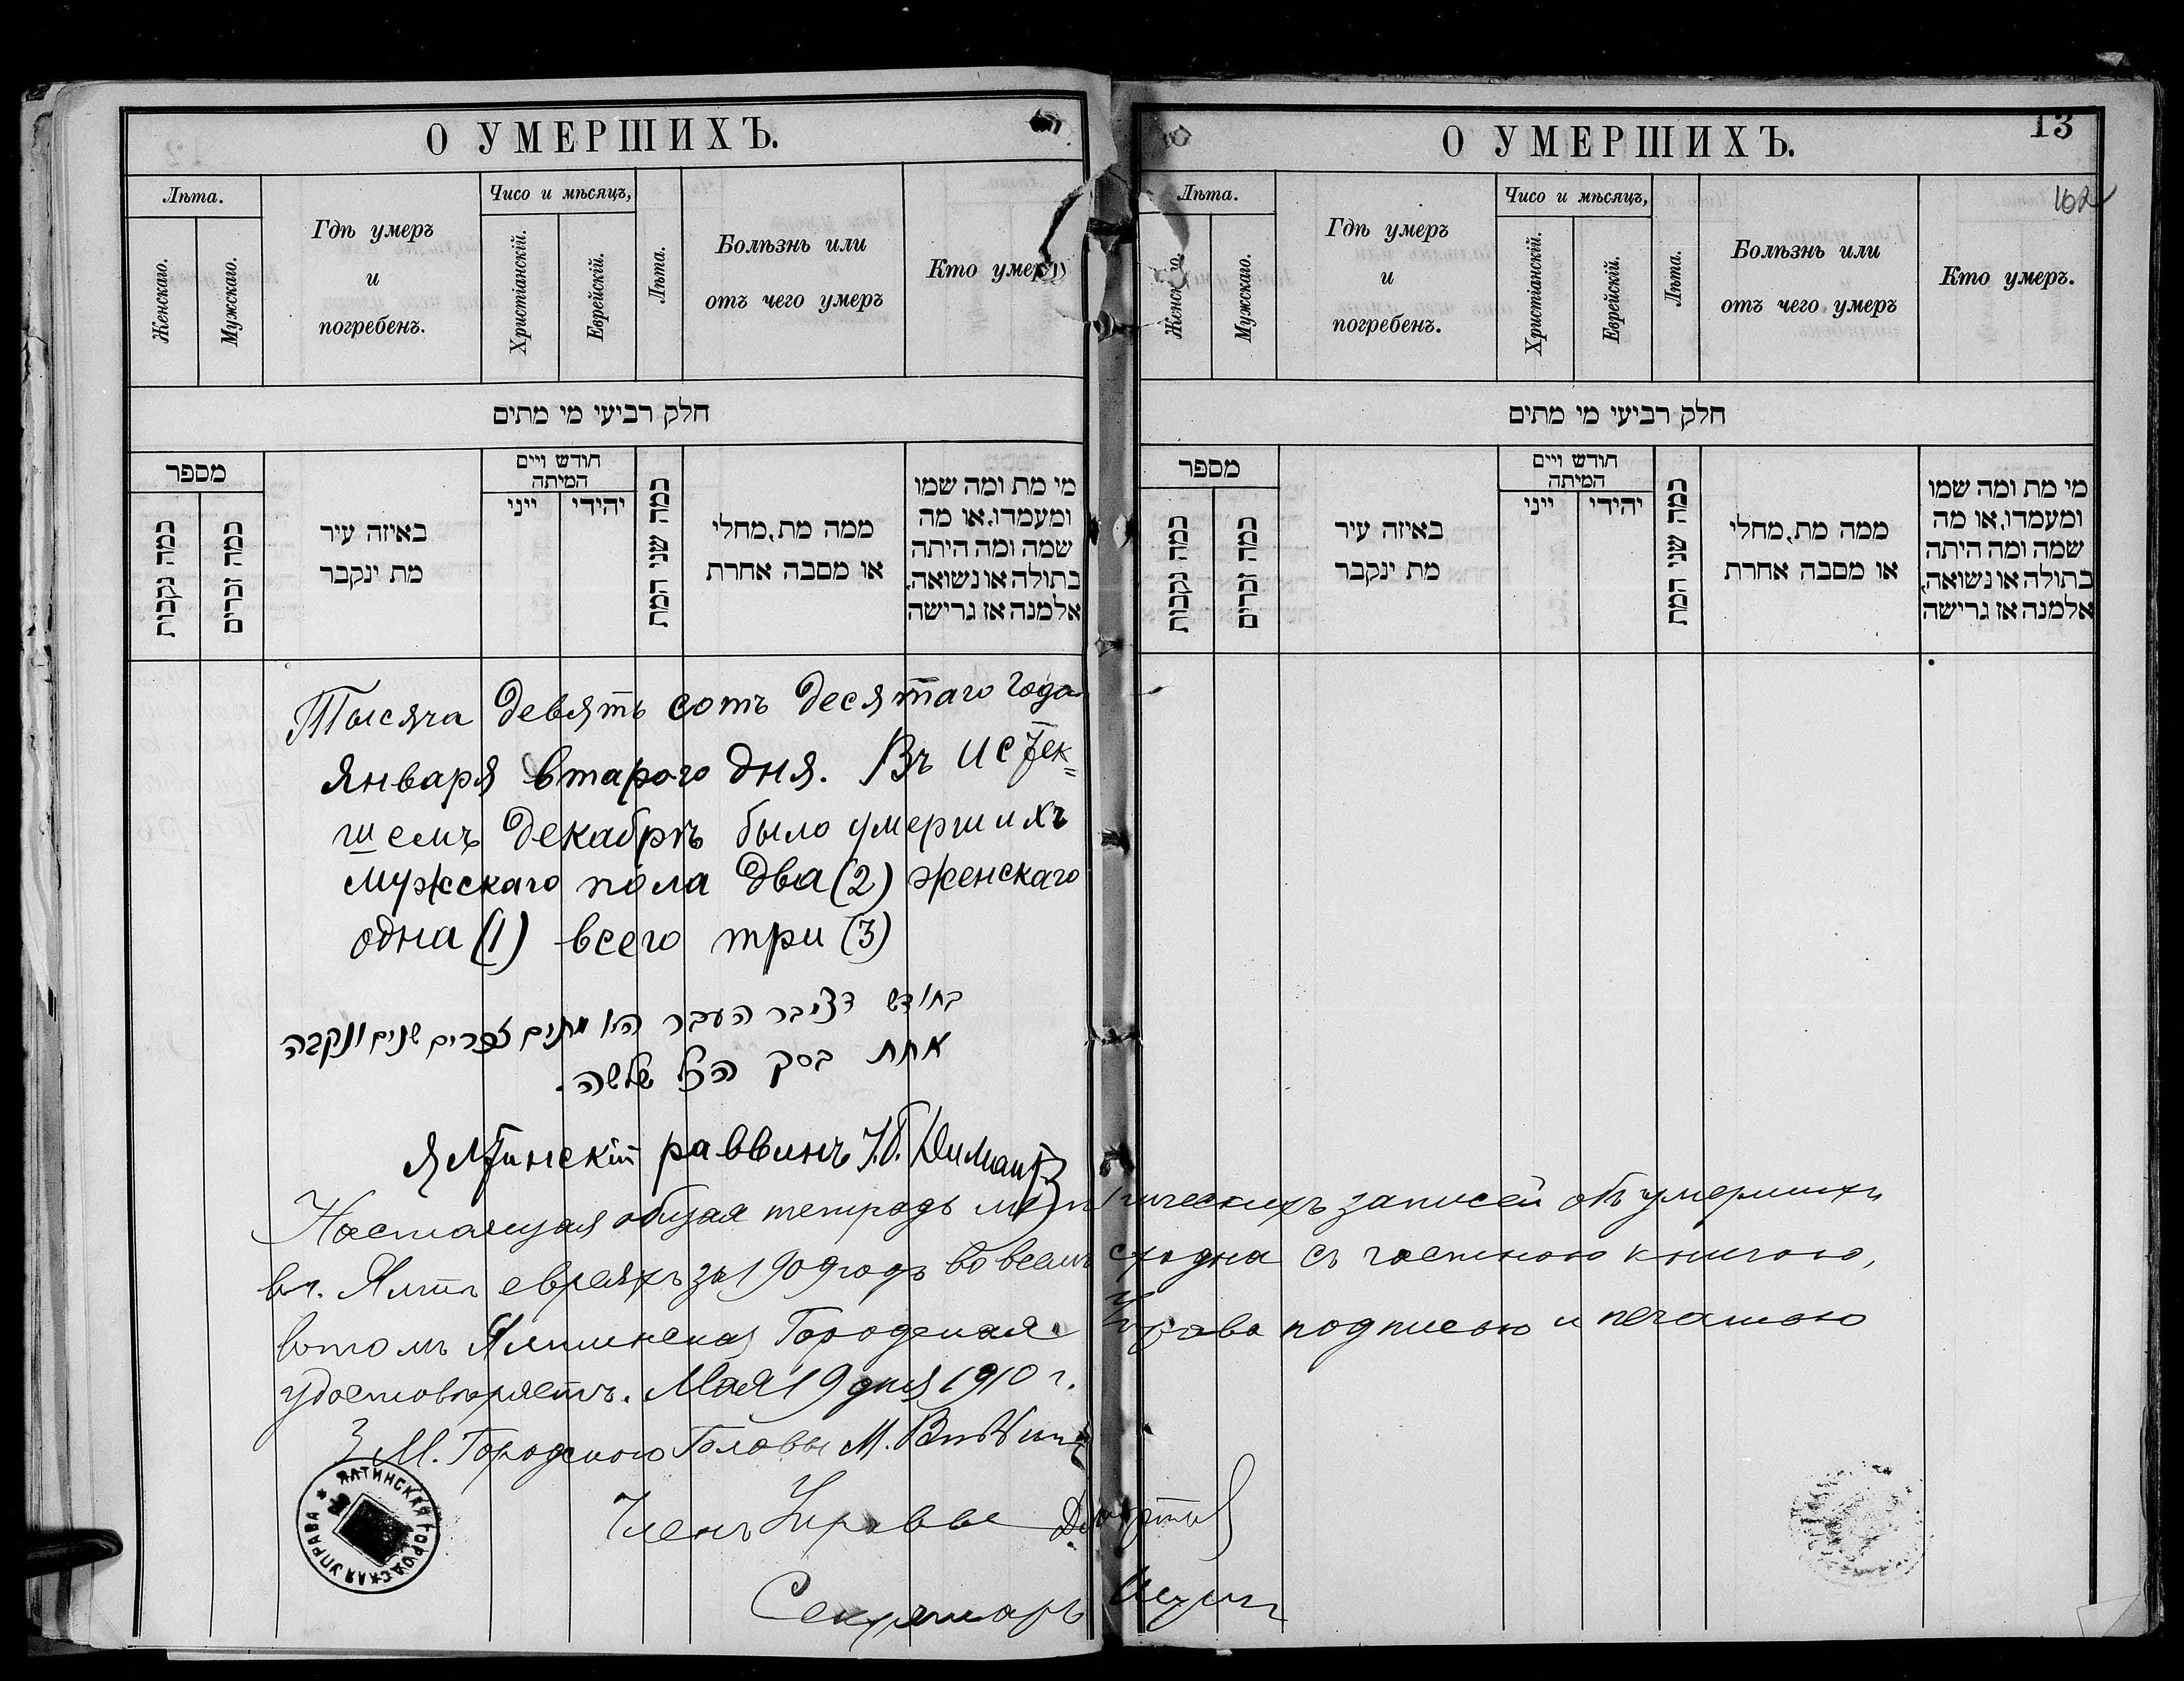 О УМЕРШИХЪ.
Лѣта.
Женскаго.
Мужскаго.
Гдѣ умеръ
и
погребенъ.
Чисо и мѣсяцъ,
Христіанскій.
Еврейскій.
Лѣта.
Болѣзнь или
отъ чего умеръ
Кто умеръ
חלק רביעי מי מתים
מספר
כמה נקבות
כמה זכרים
באיזה עיר
מת ינקבר
חודש ויים
המיתה
ייני
יהידי
כמה שני המת
ממה מת, מחלי
או מסבה אחרת
מי מת ומה שמו
ומעמדו, או מה
שמה ומה היתה
בתולה או נשואה,
אלמנה אז גרישה
Тысяча девять сотъ десятаго года
января второго дня. Въ истек=
шемъ декабрѣ было умершихъ
мужскаго пола два (2) женскаго
одна (1) всего три (3)
בחודש דצמבר העבר היו מתים זכרים שנים ונקבה
אחת בסך הכל שלשה.
Ялтинскій раввинъ
Настоящая общая тетрадь метрическихъ записей объ умершихъ
въ г. Ялтѣ евреяхъ за 1909 годъ во всемъ сходна съ частною книгою,
въ томъ Ялтинская Городская Управа подписью и печатью
удостовѣряетъ. Мая 19 дня 1910 г.
З М. Городского Головы М.
Членъ Управы
Секретарь
ЯЛТИНСКАЯ ГОРОДСКАЯ УПРАВА *
О УМЕРШИХЪ.
13
162
Лѣта.
Женскаго.
Мужскаго.
Гдѣ умеръ
и
погребенъ.
Чисо и мѣсяцъ,
Христіанскій.
Еврейскій.
Лѣта.
Болѣзнь или
отъ чего умеръ
Кто умеръ.
חלק רביעי מי מתים
מספר
כמה נקבות
כמה זכרים
באיזה עיר
מת ינקבר
חודש ויים
המיתה
ייני
יהידי
כמה שני המת
ממה מת, מחלי
או מסבה אחרת
מי מת ומה שמו
ומעמדו, או מה
שמה ומה היתה
בתולה או נשואה,
אלמנה אז גרישה